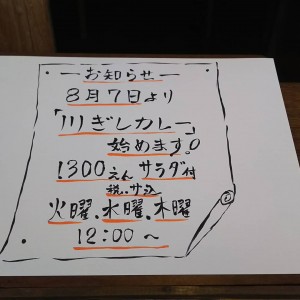 お知らせ
8月7日より
「川ぎしカレー」
始めます。
1300えん サラダ付
税・サ込
火曜、水曜、木曜
12:00〜